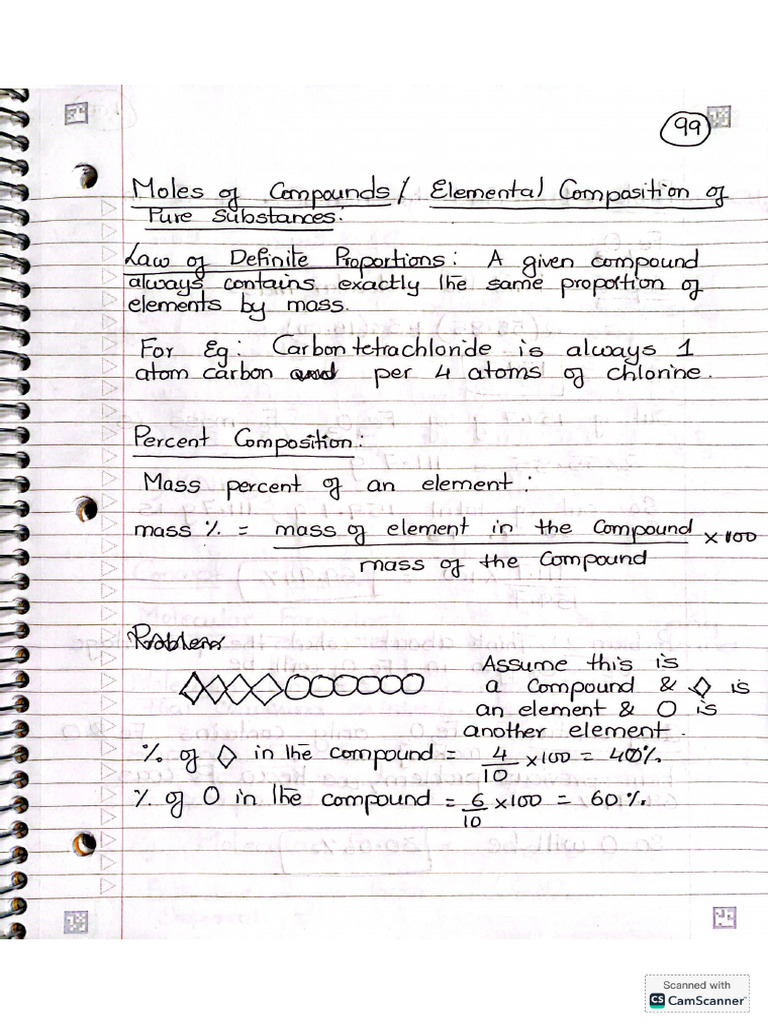 99
Moles of Compounds / Elemental Composition of
Pure Substances.
Law of Definite Proportions: A given compound
always contains exactly the same proportion of
elements by mass.
For Eg: Carbon tetrachloride is always 1
atom carbon per 4 atoms of chlorine.
Percent Composition:
Mass percent of an element:
mass % = mass of element in the compound × 100
mass of the compound
Problem
Assume this is
a compound & ◇ is
an element & O is
another element.
% of ◇ in the compound = 4/10 × 100 = 40%.
% of O in the compound = 6/10 × 100 = 60%.
Scanned with
CS CamScanner